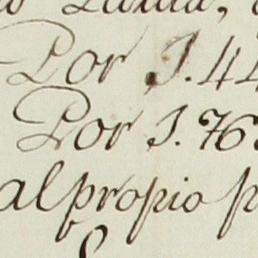 Por J. 44
Por J. 76
al propio p